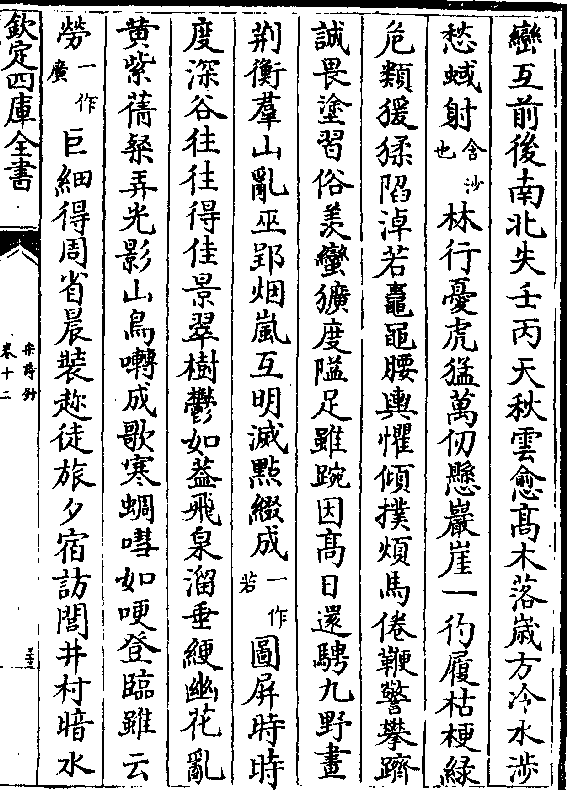 巒互前後南北失壬丙天秋雲愈高木落歲方冷水涉
愁蜮射含沙也林行憂虎猛萬仞懸巖崖一彴履枯梗緣
危類猨猱陷淖若鼃黽腰輿懼傾撲煩馬倦鞭警攀躋
誠畏塗習俗羨蠻獷度隘足雖踠因高日還騁九野畫
荆衡羣山亂巫郢烟嵐互明滅點綴成一作若圖屏時時
度深谷往往得佳景翠樹鬱如蓋飛泉溜垂綆幽花亂
黄紫蒨粲弄光影山鳥囀成歌寒蜩嘒如哽登臨雖云
勞一作廣巨細得周省晨裝趂徒旅夕宿訪閭井村暗水
欽定四庫全書
宋詩鈔
卷十二